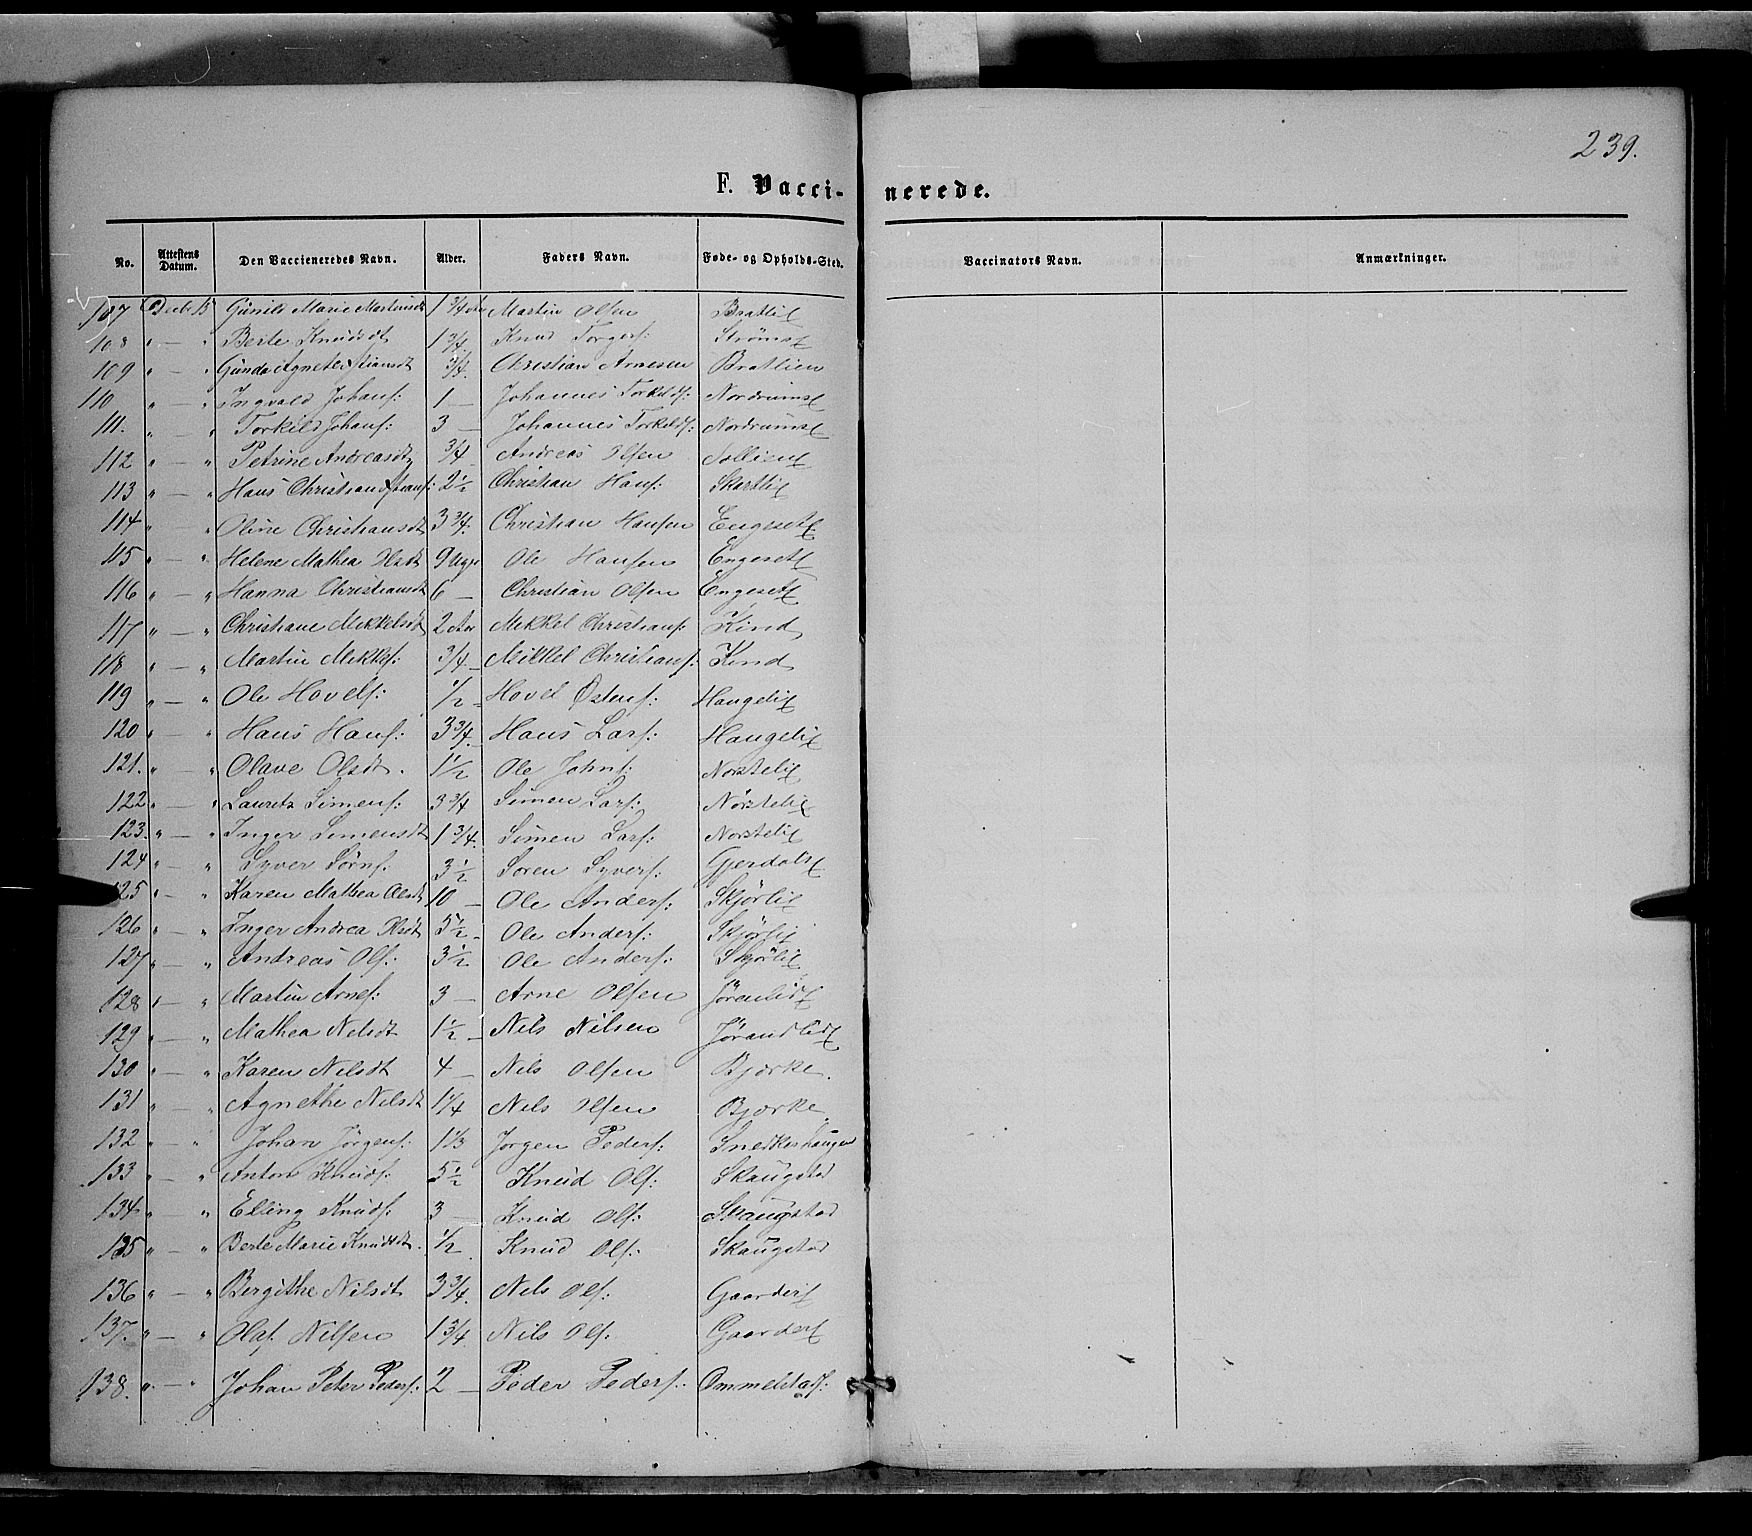 239.
F. Vacci- nerede.
No. Attestens Datum. Den Vaccieneredes Navn. Alder. Faders Navn. Føde- og Opholds-Sted. Vaccinators Navn. Anmærkninger.
107 Decbr 15 Gunild Marie Martinsdt 1 3/4 Martin Olsen Bratli
108 " — " Berte Knudsdt 1 3/4 Knud Torgers: Strøms
109 " — " Gunda Agnete 3/4. Christian Arnesen Bratlien
110 " — " Ingvald Johans: 1 — Johannes Torkilds: Nordrums
111. " — " Torkild Johans: 3 — Johannes Torkilds: Nordrums
112 " — " Petrine Andreasdt 3/4 Andreas Olsen Sollien
113 " — " Hans Christian 2 1/2 Christian Hans: Skartli
114 " — " Oline Christiansdt 3 3/4. Christian Hansen Engeset
115 " — " Helene Mathea Olsdt 9 Uger Ole Hansen Engeset
116 " — " Hanna Christiansdt 6 — Christian Olsen Engeset
117 " — " Christiane Mikkelsdt 2 Aar Mikkel Christians: Kind
118 " — " Martin Mikkels: 3/4 — Mikkel Christians: Kind
119 " — " Ole Hovels: 1/2 — Hovel Østens: Haugeli
120 " — " Hans Hans: 3 3/4. Hans Lars: Haugeli
121. " — " Olave Olsdt. 1 1/2 Ole Johns: Norsteli
122 " — " Lauritz Simens: 3 3/4 Simen Lars: Nørsteli
123. " — " Inger Simensdt 1 3/4. Simen Lars: Norsteli
124 " — " Syver Sørns. 3 1/2 Soren Syvers: Gjerdals
125 " — " Karen Mathea Olsdt 10 — Ole Anders: Skjørli
126 " — " Inger Andrea Olsdt 5 1/2 - Ole Anders: Skjørli
127 " — " Andreas Ols: 3 1/2 Ole Anders: Skjørli
128 " — " Martin Arnes: 3 — Arne Olsen Jøranlid
129 " — " Mathea Nelsdt 1 1/2 - Nils Nilsen Jørandlid
130 " — " Karen Nilsdt 4 — Nils Olsen Bjørke.
131 " — " Agnethe Nilsdt 1 1/4 Nils Olsen Bjørke
132 " — " Johan Jørgens: 1 1/3 Jørgen Peders: Snedkerhaugen
133 " — " Anton Knuds: 5 1/2 Knud Ols: Skaugstad
134 " — " Elling Knuds: 3 — Knud Ols: Skaugstad
135 " — " Berte Marie Knudsdt. 1/2 Knud Ols: Skaugstad
136 " — " Bergithe Nilsdt 3 3/4. Nils Ols: Gaarder
137. " — " Olaf. Nilsen 1 3/4. Nils Ols: Gaarder
138. " — " Johan Peter Peders: 2 — Peder Peders: Ommelstads: